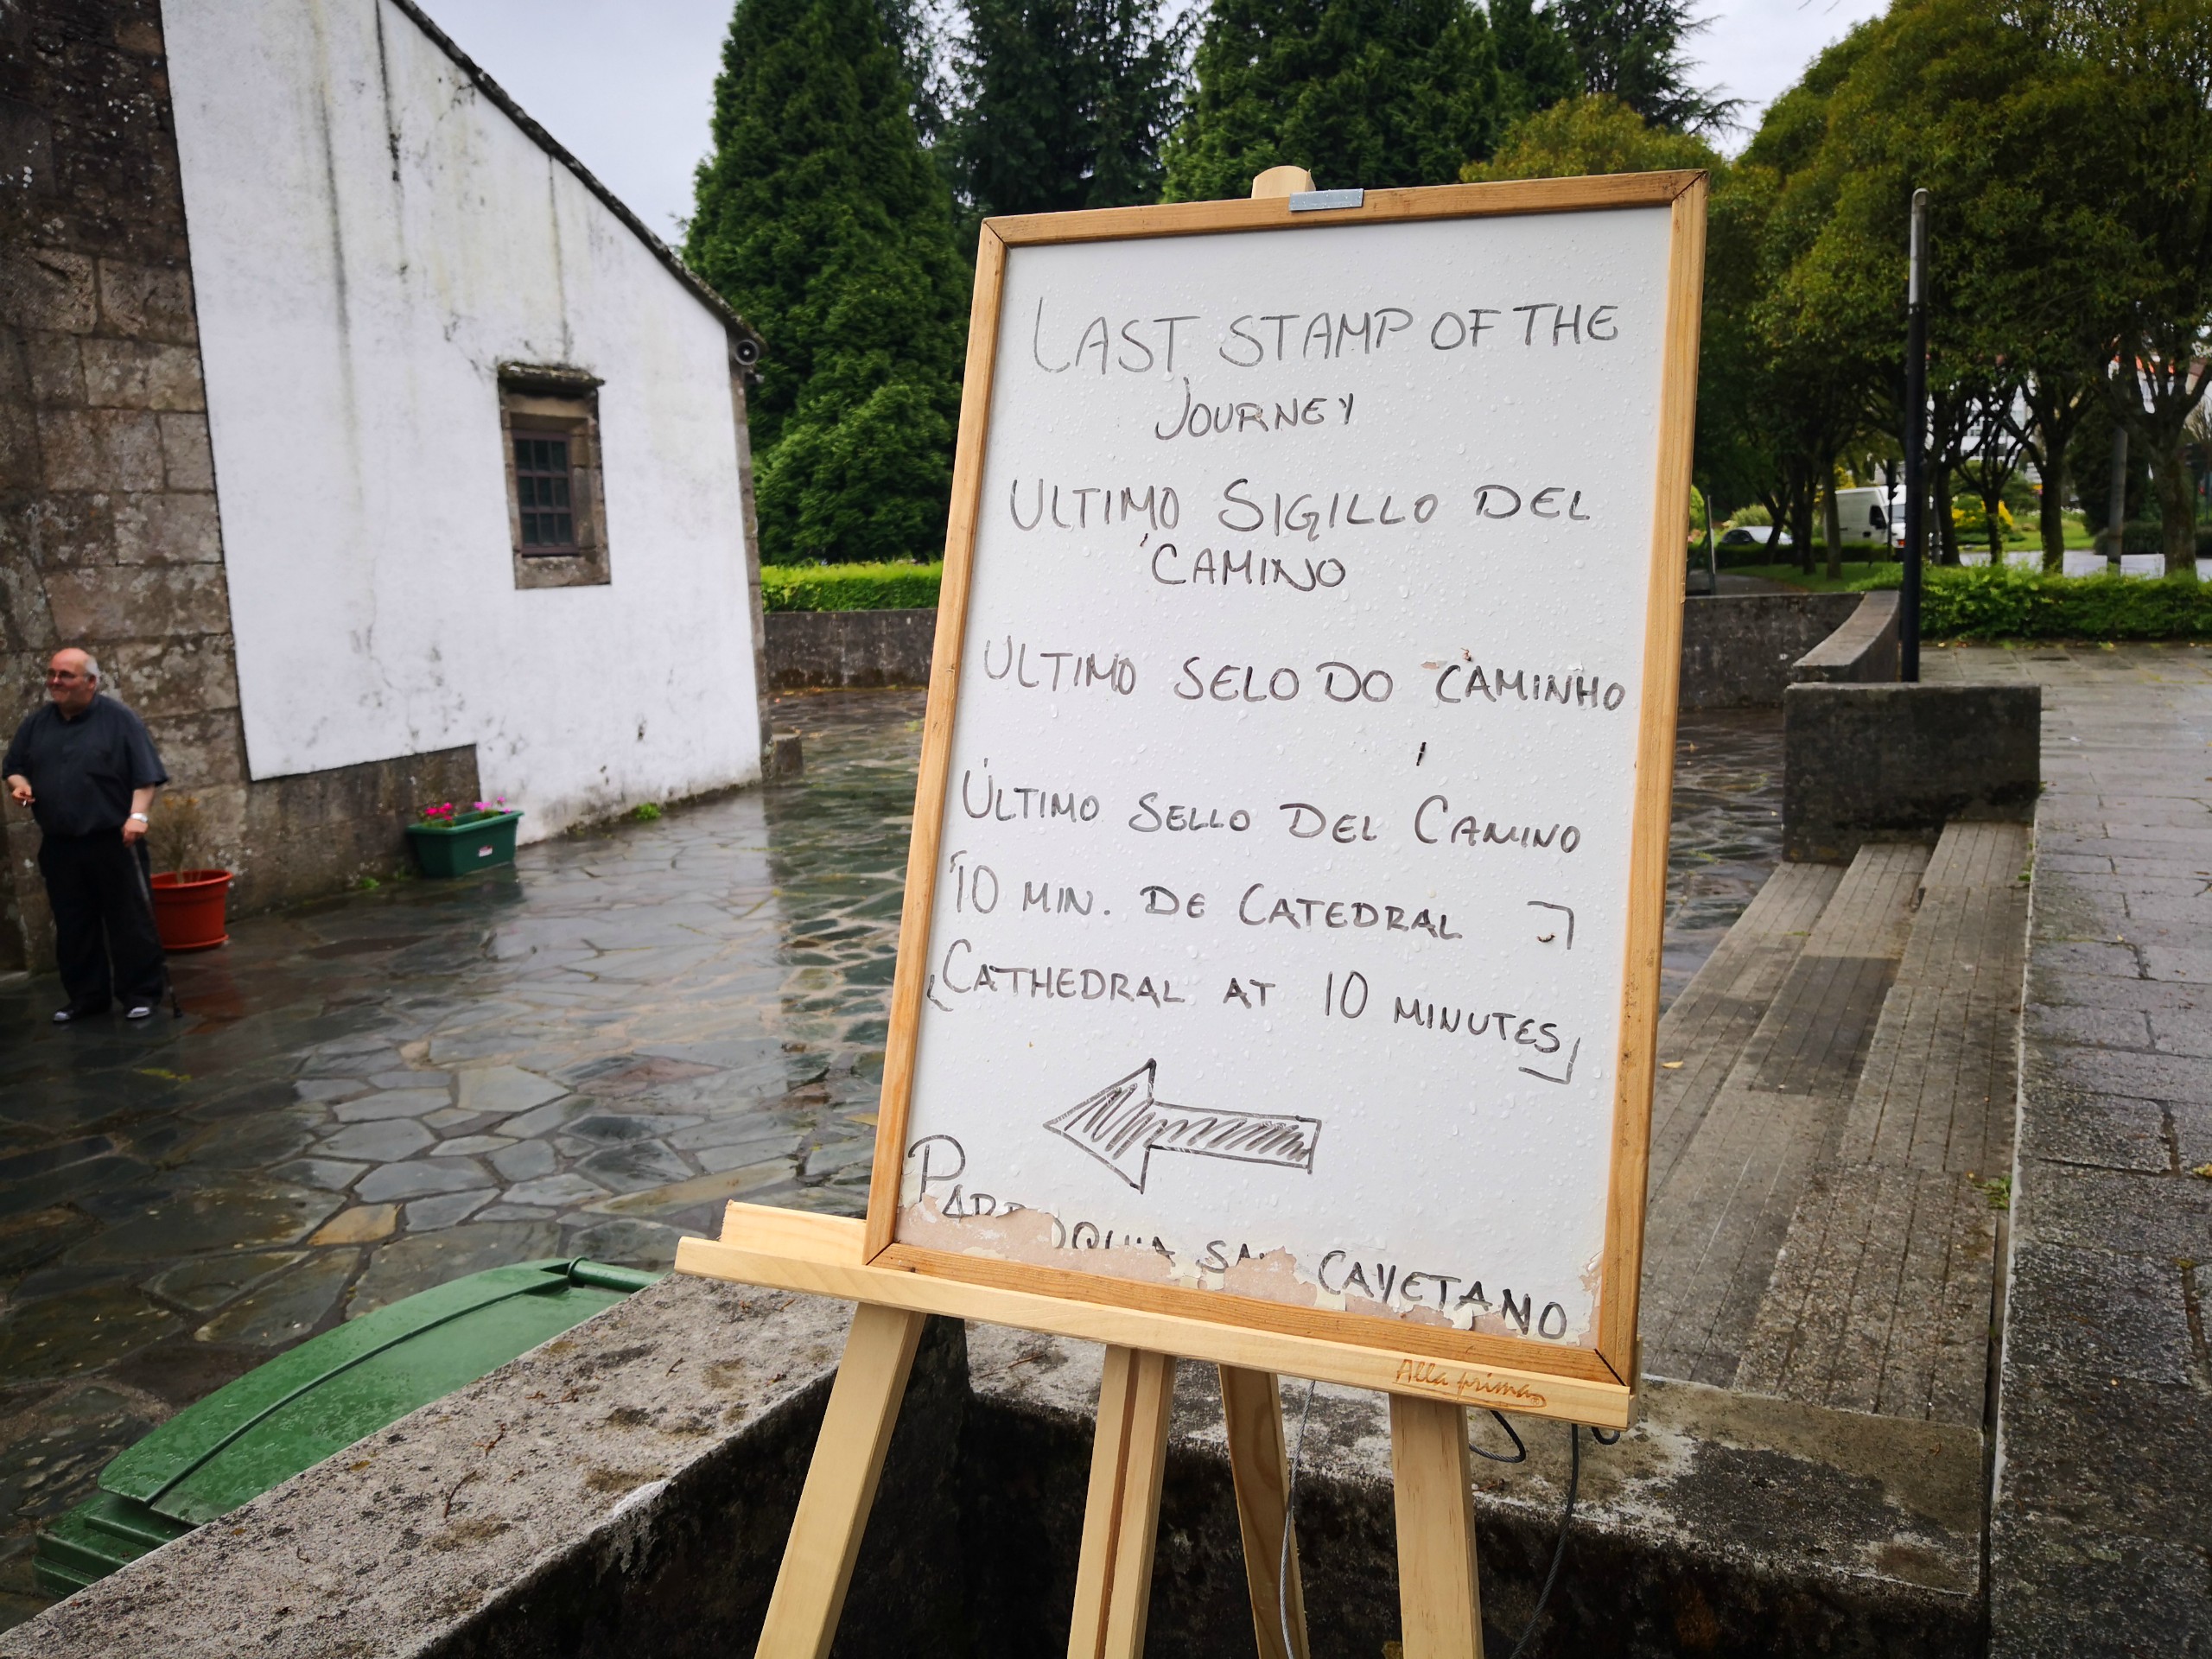 LAST STAMP OF THE
JOURNEY
ULTIMO SIGILLO DEL
CAMINO
ULTIMO SELO DO CAMINHO
ÚLTIMO SELLO DEL CAMINO
10 MIN. DE CATEDRAL
CATHEDRAL AT 10 MINUTES
CAYETANO
Alla prima